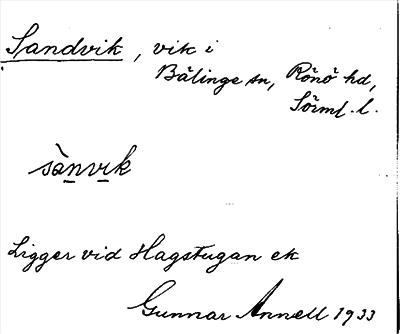 Sandvik, vik i
Bälinge sn, Rönö hd,
Sörml. l.
sànvik
Ligger vid Hagstugan ek
Gunnar Annell 1933